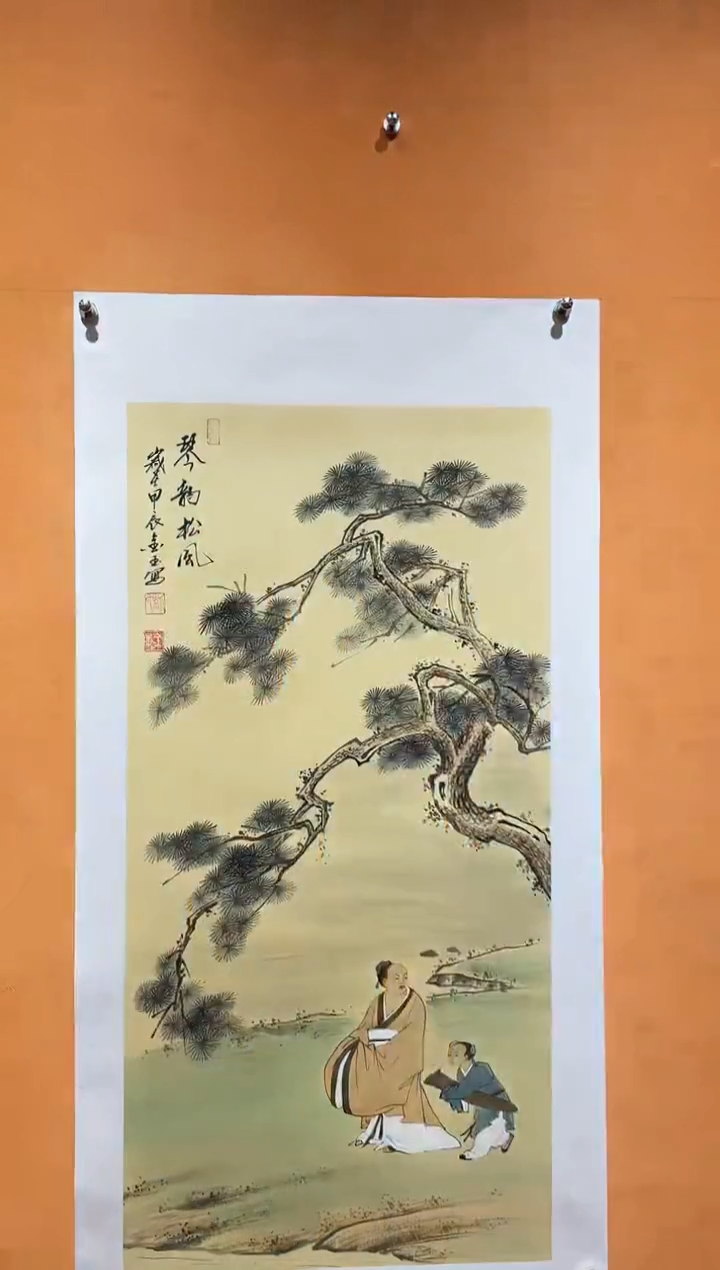 琴韵松风
岁在甲辰金玉写